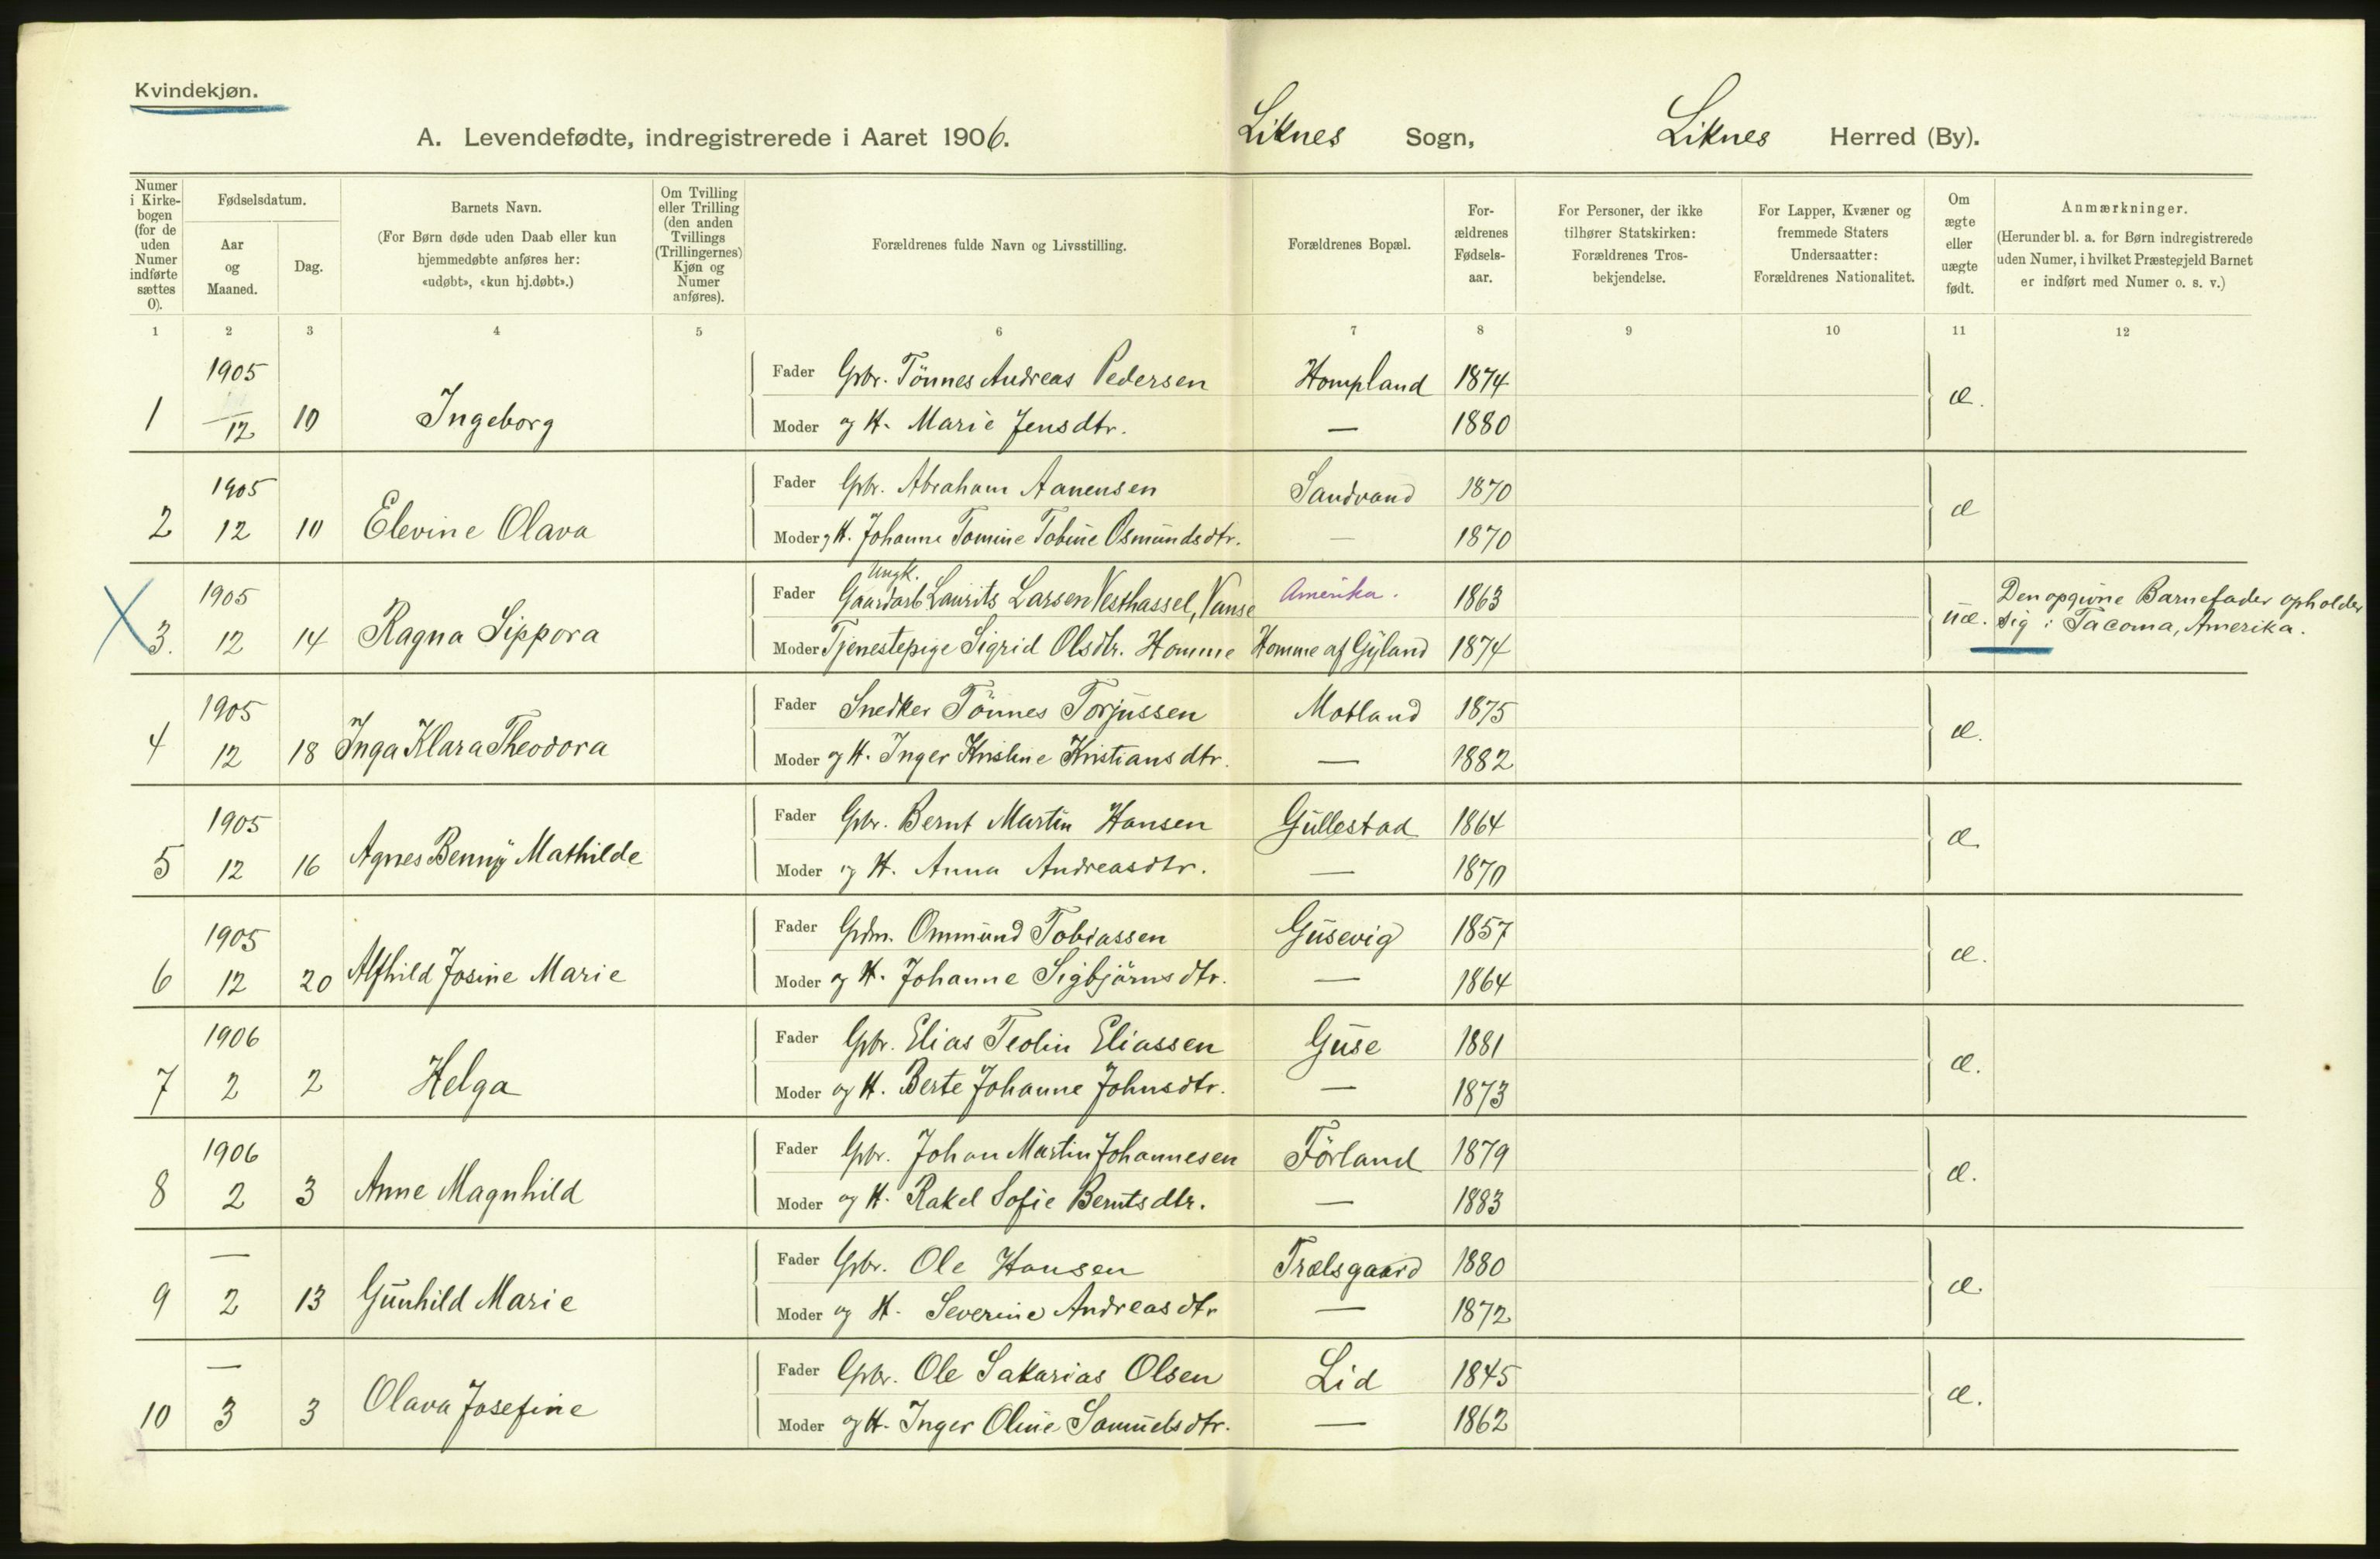 Kvindekjøn.
A. Levendefødte, indregistrerede i Aaret 1906. Liknes Sogn, Liknes Herred (By).
Numer i Kirkebogen (for de uden Numer indførte sættes 0).
Fødselsdatum.
Aar og Maaned.
Dag.
Barnets Navn.
(For Børn døde uden Daab eller kun hjemmedøbte anføres her: «udøbt», «kun hj.døbt».)
Om Tvilling eller Trilling (den anden Tvillings (Trillingernes) Kjøn og Numer anføres).
Forældrenes fulde Navn og Livsstilling.
Forældrenes Bopæl.
Forældrenes Fødselsaar.
For Personer, der ikke tilhører Statskirken: Forældrenes Trosbekjendelse.
For Lapper, Kvæner og fremmede Staters Undersaatter: Forældrenes Nationalitet.
Om ægte eller uægte født.
Anmærkninger.
(Herunder bl. a. for Børn indregistrerede uden Numer, i hvilket Præstegjeld Barnet er indført med Numer o. s. v.)
1 2 3 4 5 6 7 8 9 10 11 12
1905 Fader Gbr. Tönnes Andreas Pedersen Hompland 1874
1 12 10 Ingeborg Moder og H. Marie Jensdtr. — 1880 æ.
1905 Fader Gbr. Abraham Aanensen Sandvand 1870
2 12 10 Elevine Olava Moder og H. Johanne Tomine Tobine Osmundsdtr. — 1870 æ
1905 Fader Ungk. Gaardarb. Laurits Larsen Vesthassel, Vanse Amerika. 1863 Den opgivne Barnefader opholder
X 3. 12 14 Ragna Sippora Moder Tjenestepige Sigrid Olsdtr. Homme Homme af Gyland 1874 uæ. sig i Tacoma, Amerika.
1905 Fader Snedker Tönnes Torjussen Motland 1875
4 12 18 Inga Klara Theodora Moder og H. Inger Kristine Kristiansdtr. — 1882 æ.
1905 Fader Gbr. Bernt Martin Hansen Gullestad 1864
5 12 16 Agnes Benny Mathilde Moder og H. Anna Andreasdtr. — 1870 æ.
1905 Fader Gdm. Ommund Tobiassen Gusevig 1857
6 12 20 Alfhild Josine Marie Moder og H. Johanne Sigbjörnsdtr. — 1864 æ.
1906 Fader Gbr. Elias Teolin Eliassen Guse 1881
7 2 2 Helga Moder og H. Berte Johanne Johnsdtr. — 1873 æ.
1906 Fader Gbr. Johan Martin Johannesen Förland 1879
8 2 3 Anne Magnhild Moder og H. Rakel Sofie Berntsdtr. — 1883 æ.
— Fader Gbr. Ole Hansen Trælsgaard 1880
9 2 13 Gunhild Marie Moder og H. Severine Andreasdtr — 1872 æ.
— Fader Gbr. Ole Sakarias Olsen Lid 1845
10 3 3 Olava Josefine Moder og H. Inger Oline Samuelsdtr. — 1862 æ.